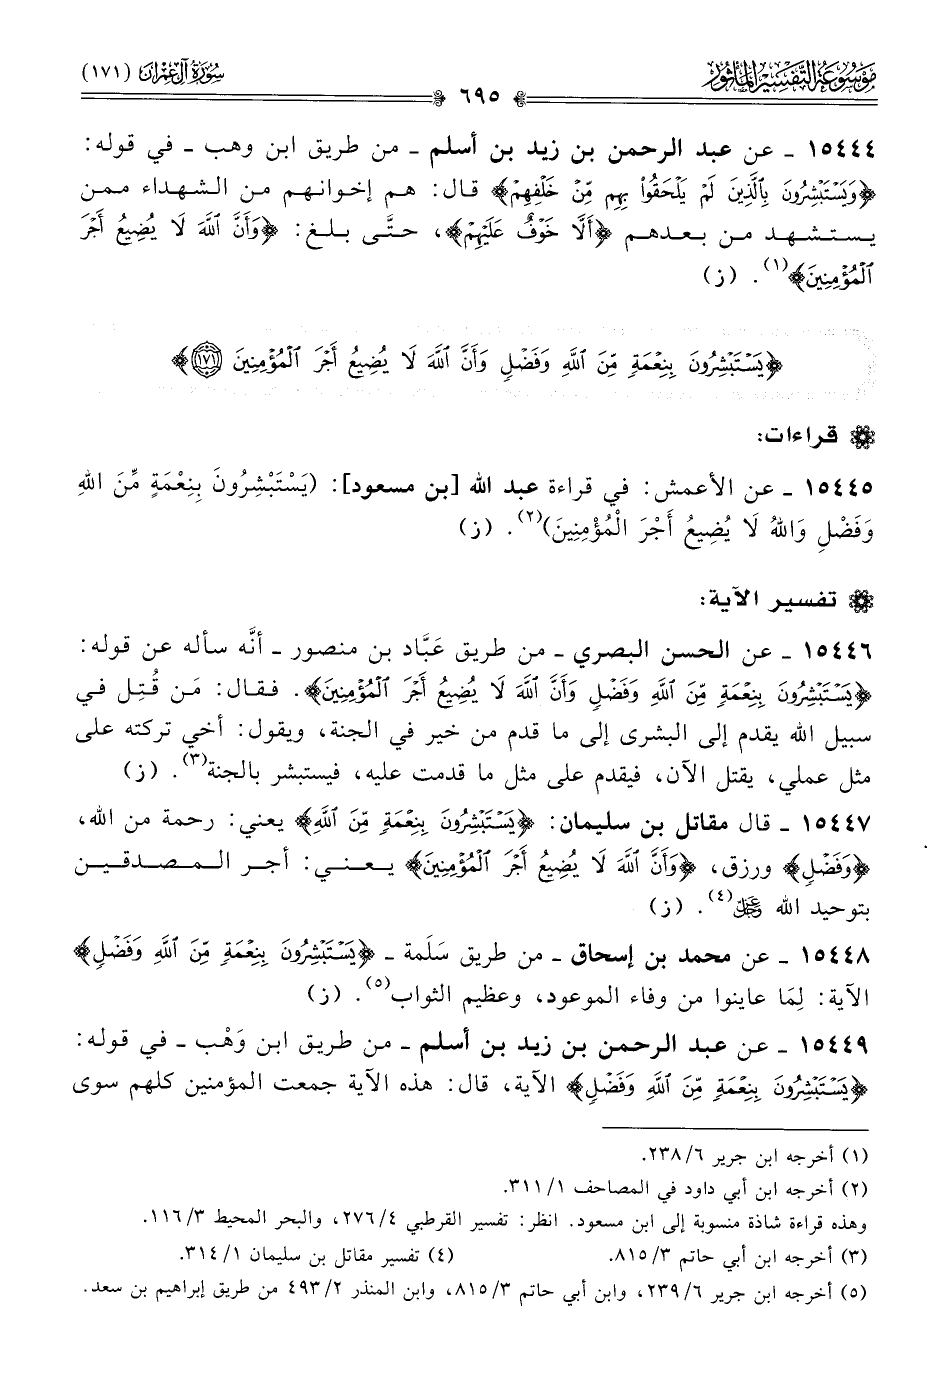 موسوعة التفسير المأثور
سورة آل عمران (١٧١)
٦٩٥
١٥٤٤٤ ـ عن عبد الرحمن بن زيد بن أسلم ـ من طريق ابن وهب ـ في قوله:
﴿وَيَسْتَبْشِرُونَ بِالَّذِينَ لَمْ يَلْحَقُوا بِهِم مِّنْ خَلْفِهِمْ﴾ قال: هم إخوانهم من الشهداء ممن
يستشهد من بعدهم ﴿أَلَّا خَوْفٌ عَلَيْهِمْ﴾، حتَّى بلغ: ﴿وَأَنَّ اللَّهَ لَا يُضِيعُ أَجْرَ
الْمُؤْمِنِينَ﴾(١). (ز)
﴿يَسْتَبْشِرُونَ بِنِعْمَةٍ مِّنَ اللَّهِ وَفَضْلٍ وَأَنَّ اللَّهَ لَا يُضِيعُ أَجْرَ الْمُؤْمِنِينَ ١٧١﴾
قراءات:
١٥٤٤٥ ـ عن الأعمش: في قراءة عبد الله [بن مسعود]: (يَسْتَبْشِرُونَ بِنِعْمَةٍ مِّنَ اللهِ
وَفَضْلٍ وَاللهُ لَا يُضِيعُ أَجْرَ الْمُؤْمِنِينَ)(٢). (ز)
تفسير الآية:
١٥٤٤٦ ـ عن الحسن البصري ـ من طريق عَبَّاد بن منصور ـ أنَّه سأله عن قوله:
﴿يَسْتَبْشِرُونَ بِنِعْمَةٍ مِّنَ اللَّهِ وَفَضْلٍ وَأَنَّ اللَّهَ لَا يُضِيعُ أَجْرَ الْمُؤْمِنِينَ﴾. فقال: مَن قُتِل في
سبيل الله يقدم إلى البشرى إلى ما قدم من خير في الجنة، ويقول: أخي تركته على
مثل عملي، يقتل الآن، فيقدم على مثل ما قدمت عليه، فيستبشر بالجنة(٣). (ز)
١٥٤٤٧ ـ قال مقاتل بن سليمان: ﴿يَسْتَبْشِرُونَ بِنِعْمَةٍ مِّنَ اللَّهِ﴾ يعني: رحمة من الله،
﴿وَفَضْلٍ﴾ ورزق، ﴿وَأَنَّ اللَّهَ لَا يُضِيعُ أَجْرَ الْمُؤْمِنِينَ﴾ يعني: أجر المصدقين
بتوحيد الله ﷿(٤). (ز)
١٥٤٤٨ ـ عن محمد بن إسحاق ـ من طريق سَلَمة ـ ﴿يَسْتَبْشِرُونَ بِنِعْمَةٍ مِّنَ اللَّهِ وَفَضْلٍ﴾
الآية: لِمَا عاينوا من وفاء الموعود، وعظيم الثواب(٥). (ز)
١٥٤٤٩ ـ عن عبد الرحمن بن زيد بن أسلم ـ من طريق ابن وَهْب ـ في قوله:
﴿يَسْتَبْشِرُونَ بِنِعْمَةٍ مِّنَ اللَّهِ وَفَضْلٍ﴾ الآية، قال: هذه الآية جمعت المؤمنين كلهم سوى
(١) أخرجه ابن جرير ٦/ ٢٣٨.
(٢) أخرجه ابن أبي داود في المصاحف ١/ ٣١١.
وهذه قراءة شاذة منسوبة إلى ابن مسعود. انظر: تفسير القرطبي ٤/ ٢٧٦، والبحر المحيط ٣/ ١١٦.
(٣) أخرجه ابن أبي حاتم ٣/ ٨١٥. (٤) تفسير مقاتل بن سليمان ١/ ٣١٤.
(٥) أخرجه ابن جرير ٦/ ٢٣٩، وابن أبي حاتم ٣/ ٨١٥، وابن المنذر ٢/ ٤٩٣ من طريق إبراهيم بن سعد.